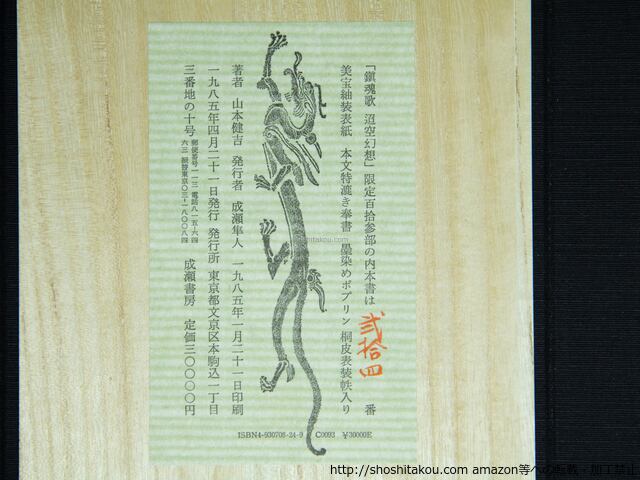 「鎮魂歌　迢空幻想」限定百拾参部の内本書は　弐拾四　番
美宝紬装表紙　本文特漉き奉書　墨染めポプリン　桐皮表装帙入り
著者　山本健吉　発行者　成瀬隼人　一九八五年一月二十一日印刷
一九八五年四月二十一日発行　発行所　東京都文京区本駒込一丁目
三番地の十号　成瀬書房　定価三〇〇〇〇円
ISBN4-930708-24-9　C0093　¥30000E
shitakou.com
http://shoshitakou.com amazon等への転載・加工禁止